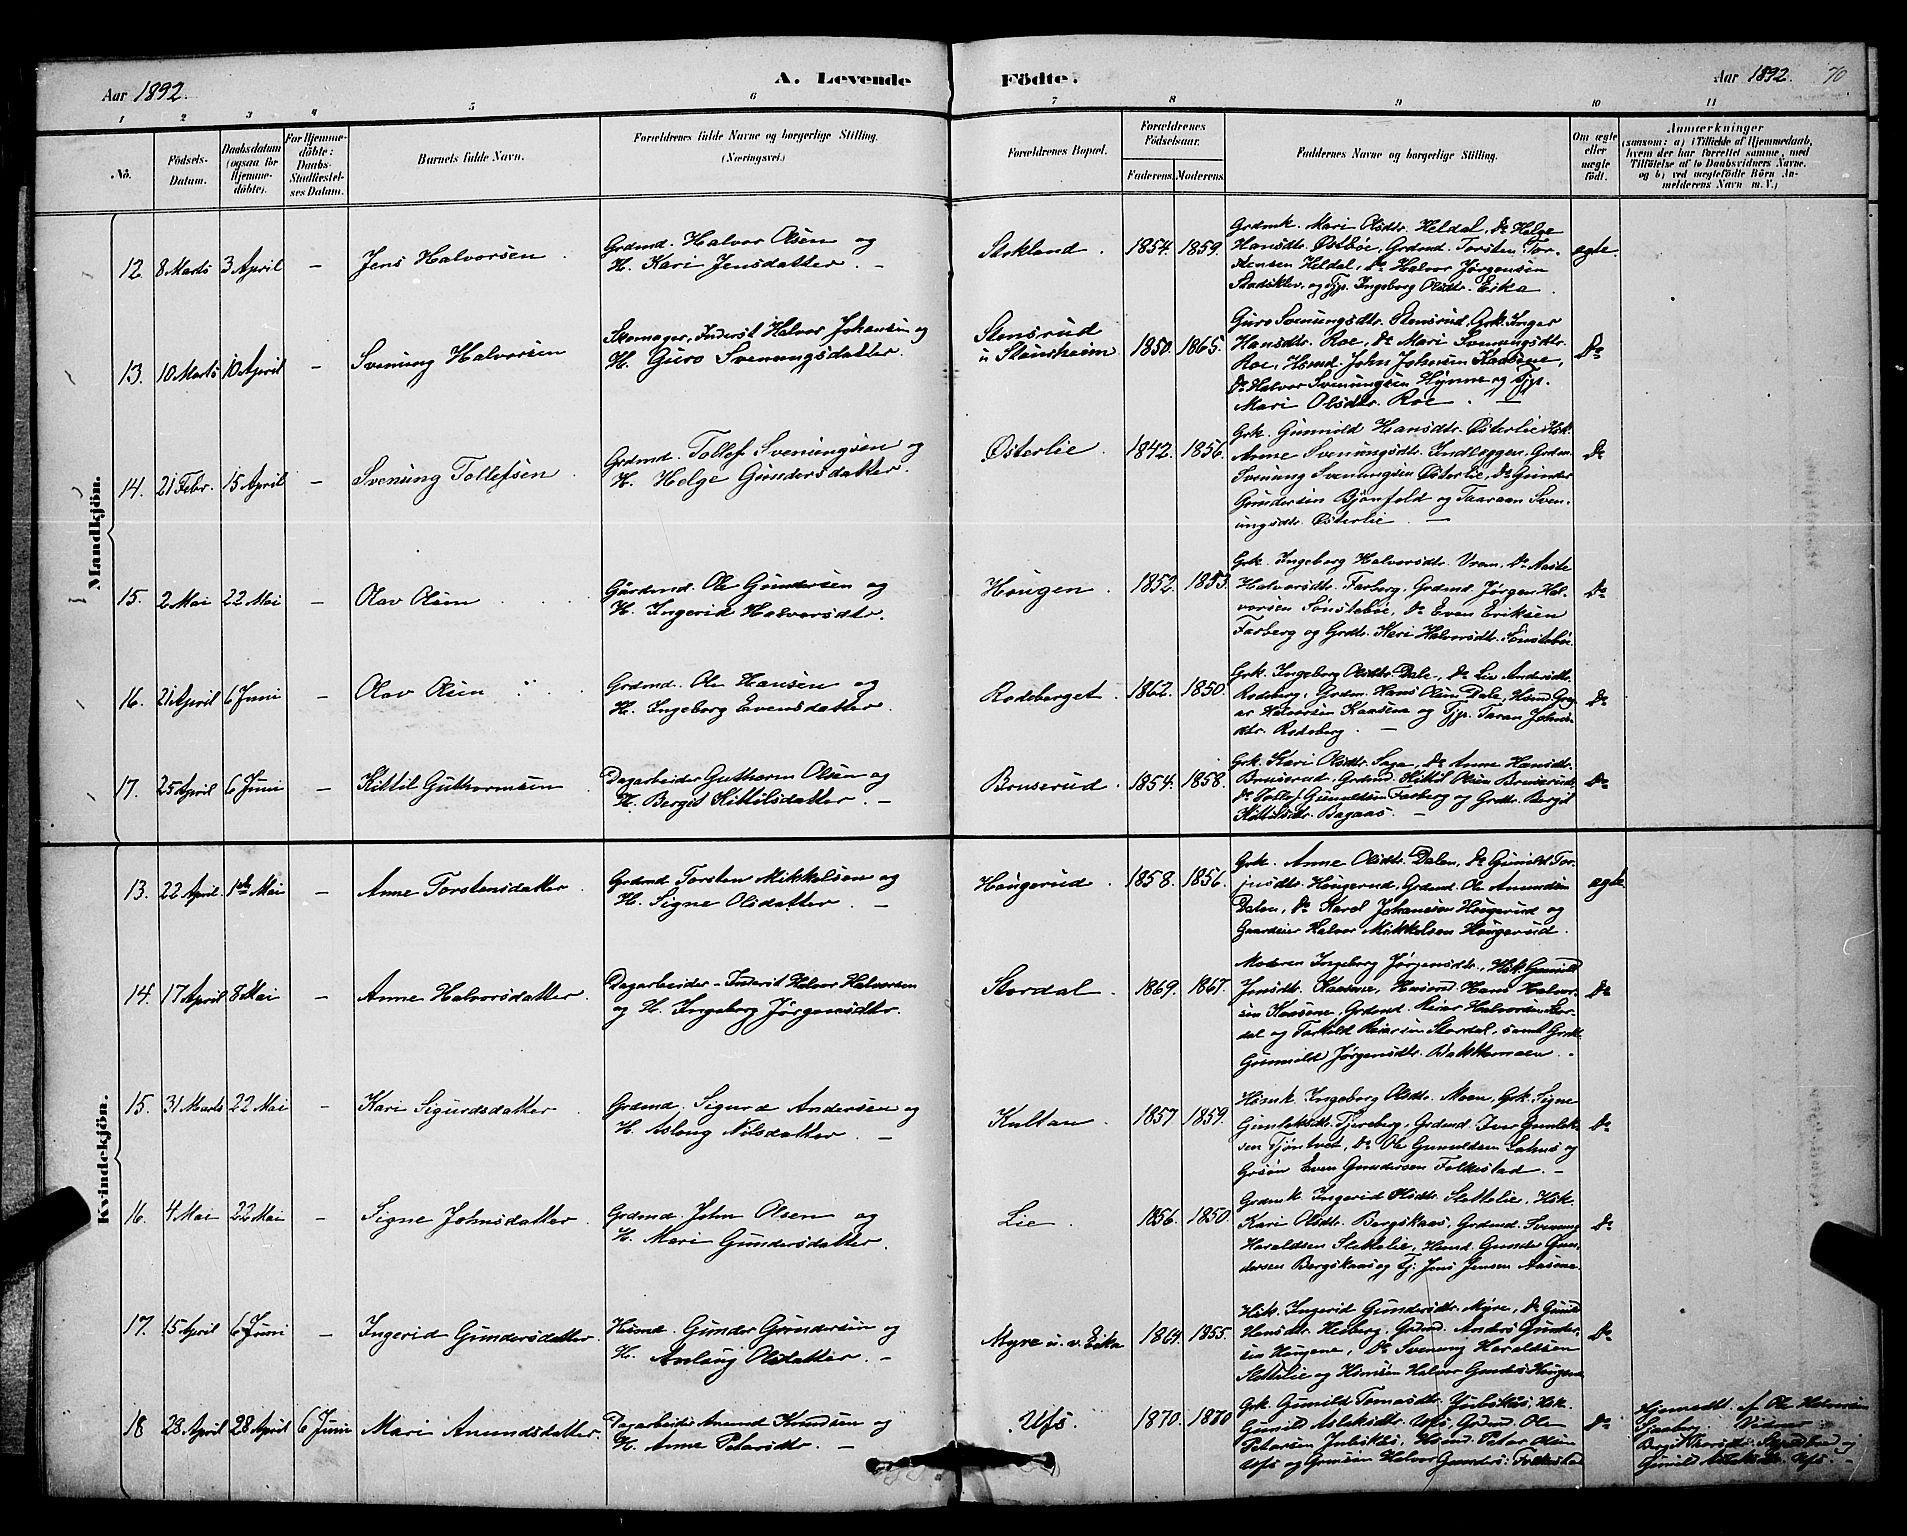 Aar 1892.
A. Levende
Födte.
Aar 1892. 70
1 2 3 4 5 6 7 8 9 10 11
No.
Födsels-
Datum.
Daabsdatum
(ogsaa for
Hjemme-
döbte).
For Hjemme-
döbte:
Daabs-
Stadfæstel-
ses Datum.
Barnets fulde Navn.
Forældrenes fulde Navne og borgerlige Stilling.
(Næringsvei.)
Forældrenes Bopæl.
Forældrenes
Födselsaar.
Faderens. Moderens.
Faddernes Navne og borgerlige Stilling.
Om ægte
eller
uægte
født.
Anmærkninger
(saasom: a) i Tilfælde af Hjemmedaab,
hvem der har forrettet samme, med
Tilföielse af to Daabsvidners Navne,
og b) ved uægtefödte Börn An-
melderens Navn m. V.)
Mandkjön.
12. 8 Marts 3 April –
Jens Halvorsen
Grdmd. Halvor Olsen og
H. Kari Jensdatter. –
Stokland. 1854. 1859.
Grdmk. Mari Olsdtr. Heldal, Do Helge
Hansdtr. Østbøe, Grdmd. Torsten Tor-
stensen Heldal, Do Halvor Jørgensen
Stadsklev, og Tjp. Ingeborg Olsdtr. Eika.
ægte.
13. 10 Marts 10 April –
Svenung Halvorsen
Skomager, Inderst Halvor Johansen og
H. Guro Svenungsdatter.
Stensrud
u. Stensheim 1850. 1865.
Guro Svenungsdtr. Stensrud, Grk. Inger
Hansdtr. Roe, Do Mari Svenungsdtr.
Roe, Hsmd. John Johnsen Kaasene,
Do Halvor Svenungsen Hynne og Tjp.
Mari Olsdtr. Roe. –
Do
14. 21 Febr. 15 April –
Svenung Tollefsen
Grdmd. Tollef Svenungsen og
H. Helge Gundersdatter.
Østerlie. 1842. 1856.
Grk. Gunnild Hansdtr. Østerlie, Hsk.
Anne Svenungsdtr. Indleggen, Grdm.
Svenung Svenungsen Østerlie, Do Gunder
Gundersen Bjønfeld og Taaraan Sven-
ungsdtr. Østerlie. –
Do
15. 2 Mai 22 Mai –
Olav Olsen
Gårdmd. Ole Gundersen og
H. Ingerid Halvorsdtr.
Hougen. 1852. 1853.
Grk. Ingeborg Halvorsdtr. Vraa, Do Aaste
Halvorsdtr. Farberg, Grdmd. Jørgen Hal-
vorsen Sønstebøe, Do Even Eriksen
Farberg og Grdtr. Kari Halvorsdtr. Sønstebøe.
Do
16. 21 April 6 Juni –
Olav Olsen
Grdmd. Ole Hansen og
H. Ingeborg Evensdatter.
Rodeberget. 1862. 1850.
Grk. Ingeborg Olsdtr. Dale, Do Liv Andersdtr.
Rodeberg, Grdm. Hans Olsen Dale, Hsmd.
Halvorsen Kaasene og Tjp. Taran Johns-
dtr. Rodeberg. –
Do
17. 25 April 6 Juni –
Kittil Guthormsen
Dagarbeider Guthorm Olsen og
H. Bergit Kittilsdatter. –
Bruserud. 1854. 1858.
Grk. Kari Olsdtr. Saga, Do Anne Hansdtr.
Bruserud, Grdmd. Kittil Olsen Bruserud,
Do Tollef Gunuldsen Farberg og Grdtr. Bergit
Kittilsdtr. Bagaas. –
Do
Kvindekjön.
13. 22 April 1ste Mai –
Anne Torstensdatter
Grdmd Torsten Mikkelsen og
H. Signe Olsdatter. –
Hougerud. 1858. 1856.
Grk. Anne Olsdtr. Dalen, Do Gunild Tor-
jusdtr. Hougerud, Grdmd Ole Amundsen
Dalen, Do Karel Johannesen Hougerud og
Gaardeier Halvor Mikkelsen Hougerud.
ægte
14. 17 April 8 Mai –
Anne Halvorsdatter.
Dagarbeider - Inderst Halvor Halvorsen
og H. Ingeborg Jørgensdtr.
Stordal. 1869. 1867.
Moderen Ingeborg Jørgensdtr., Hsk. Gunild
Jonsdtr. Kaasene, Husmd. Hans Halvor-
sen Kaasene, Grdmd. Reiar Halvorsen Stor-
dal og Torkild Reiarsen Stordal, samt Grdk.
Gunnild Jørgensdtr. Bakkemoen.
Do
15. 31 Marts 22 Mai –
Kari Sigurdsdatter.
Grdmd. Sigurd Andersen og
H. Aslaug Nilsdatter. –
Kultan. 1857 1859.
Hsmk. Ingeborg Olsdtr. Moen, Grk. Signe
Gunleksdtr. Tjereberg, Grdmd. Iver Gunlek-
sen Tjøntvet, Do Ole Gunuldsen og
Grsøn Even Gundersen Folkestad. –
Do
16. 4 Mai 22 Mai –
Signe Johnsdatter.
Grdmd. John Olsen og
H. Mari Gundersdatter.
Lie. 1856. 1850.
Grdmk. Ingerid Olsdtr. Slettelie, Hsk.
Kari Olsdtr. Bergskaas, Grdmd. Svenung
Haraldsen Slettelie, Hsmd. Gunder Gun-
dersen Bergskaas og Tj. Jens Jensen Aasene.
Do
17. 15 April 6 Juni –
Ingerid Gundersdatter.
Hsmd. Gunder Gundersen og
H. Anlaug Olsdatter. –
Myre u. v. Eika 1864. 1855.
Hsk. Ingerid Gundersdtr. Myre, Do Gunild
Hansdtr. Heiberg, Grdmd. Anders Gunder-
sen Hougene, Do Svenung Haraldsen
Slettelie og Hsmsøn Halvor Gunders. Hougene
Do
18 28 April 28 April 6 Juni
Mari Amundsdatter.
Dagarbeider Amund Knudsen og
H. Anne Petersdtr. –
Ufs. 1870. 1870
Grk. Gunild Tomasdtr. Hsk.
Gunild Asleksdtr. Ufs, Grdmd. Ole
Petersen Hsmd. Peter Olsen
Ufs og Grmsøn Halvor Gunders: Folkestad
Do
Hjemmedbt. af Ole Halvorsen
Gunild Asleksdtr. Ufs. –